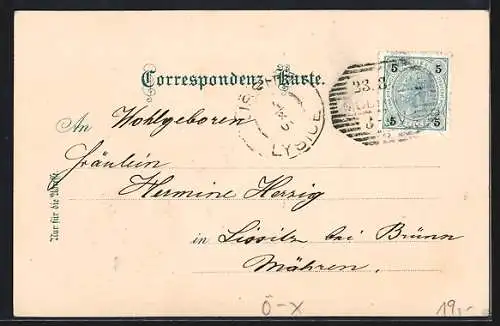 Correspondenz-Karte.
5 5
23.3
5 5
LYSICE
An Wohlgeboren
Fräulein
Hermine Herzig
in Lissitz bei Brünn
Mähren.
Nur für die Adresse
Ö-X
19,-